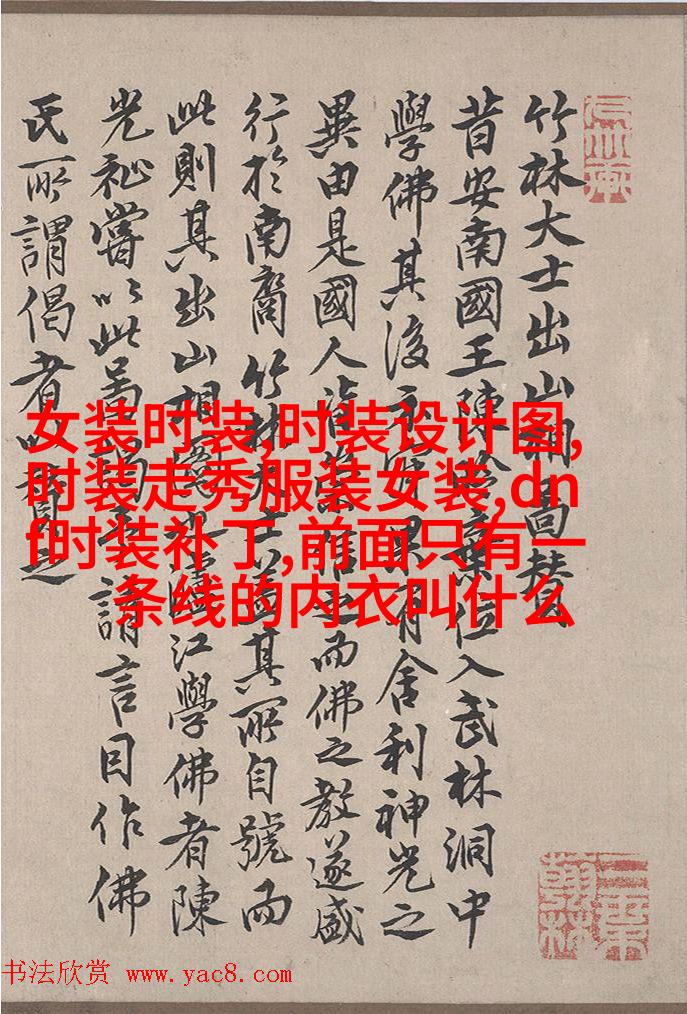 竹林大士出山相
昔安南國王陳棄位入武林洞中
學佛其後果有舍利神光之
異由是國人皆之而佛之教遂盛
行於南裔竹林大士其所自號而
此則其出山相也江學佛者陳
光祉嘗以此請言因作佛
氏所謂偈者以贊之
女装时装,时装设计图,
时装走秀服装女装,dn
f时装补丁,前面只有一
条线的内衣叫什么
书法欣赏 www.yac8.com